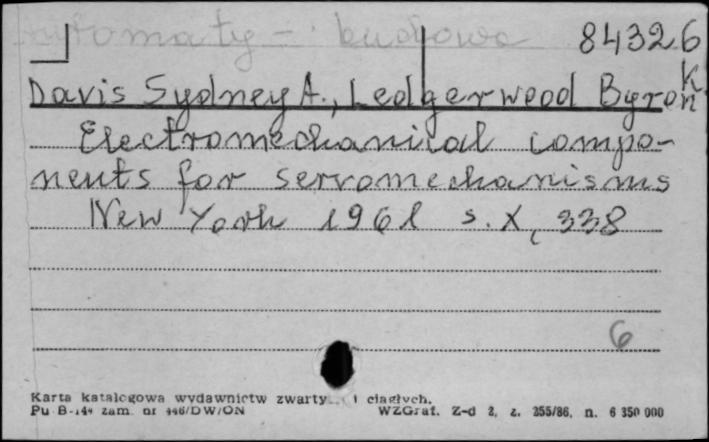 automaty - budowa 84326
Davis Sydney A., Ledgerwood Byron K.
Electromechanical compo-
nents for servomechanisms
New York 1961 s. X, 338
6
Karta katalogowa wydawnictw zwarty i ciągłych.
Pu B-144 zam. nr 446/DW/ON WZGraf. Z-d 2, z. 255/86, n. 6 350 000